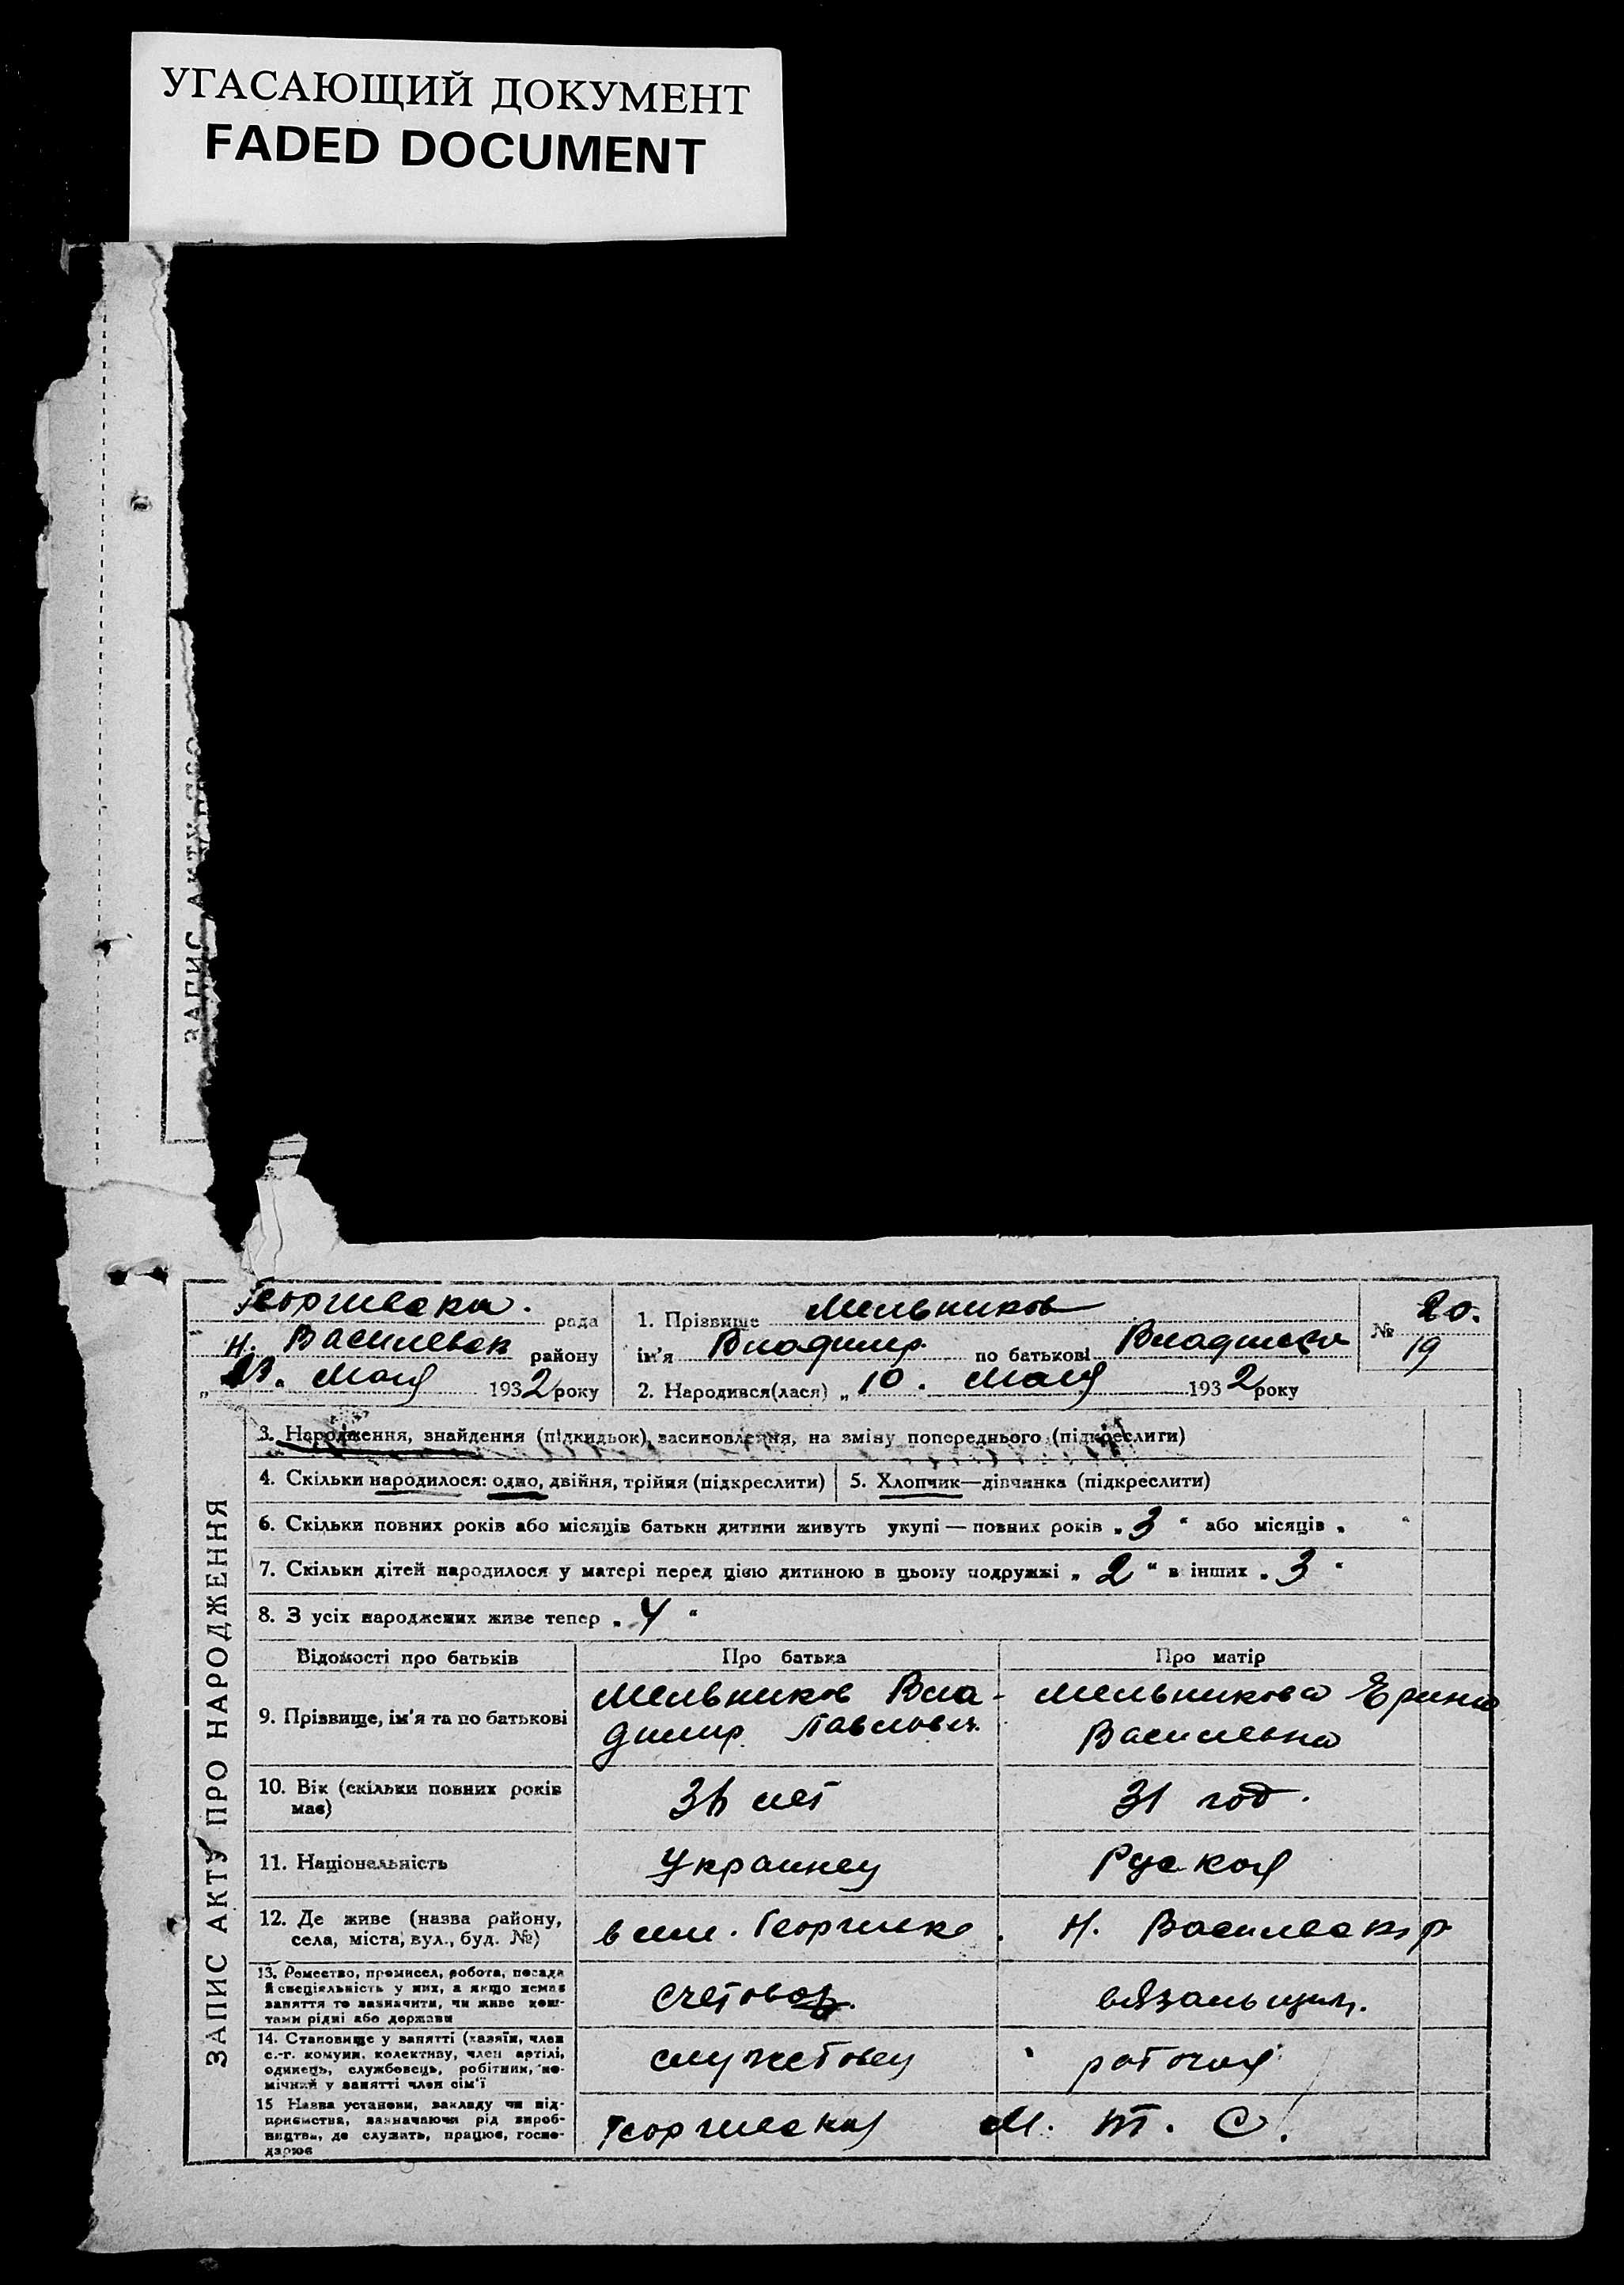 УГАСАЮЩИЙ ДОКУМЕНТ
FADED DOCUMENT
ЗАПИС АКТУ ПРО
Георгиевска. рада
Н. Василевск району
„23. Мая 1932 року
1. Прізвище Мельников
ім'я Владимир по батькові
2. Народився(лася) „10. Мая 1932 року
№ 20.
19
ЗАПИС АКТУ ПРО НАРОДЖЕННЯ
3. Народження, знайдення (підкидьок), засиновлення, на зміну попереднього (підкреслити)
4. Скільки народилося: одно, двійня, трійня (підкреслити)
5. Хлопчик—дівчинка (підкреслити)
6. Скільки повних років або місяців батьки дитини живуть укупі — повних років „3“ або місяців „ “
7. Скільки дітей народилося у матері перед цією дитиною в цьому подружжі „2“ в інших „3“
8. З усіх народжених живе тепер „4“
Відомості про батьків
Про батька
Про матір
9. Прізвище, ім'я та по батькові
Мельников Вла-
димир Павлович
Мельникова Ерина
Васильевна
10. Вік (скільки повних років
має)
36 лет
31 год.
11. Національність
Украинец
Руская
12. Де живе (назва району,
села, міста, вул., буд. №)
Н. Василевск р
13. Ремество, промисел, робота, посада
й спеціяльність у них, а якщо немає
заняття то зазначити, чи живе кош-
тами рідні або держави
счетовод.
вязальщиц.
14. Становище у занятті (хазяїн, член
с.-г. комуни, колективу, член артілі,
одинець, службовець, робітник, по-
мічний у занятті член сім'ї
служебовец
работая
15 Назва установи, закладу чи під-
приємства, зазначаючи рід вироб-
ництва, де служить, працює, госпо-
дарює
Георгиевская М. Т. С.